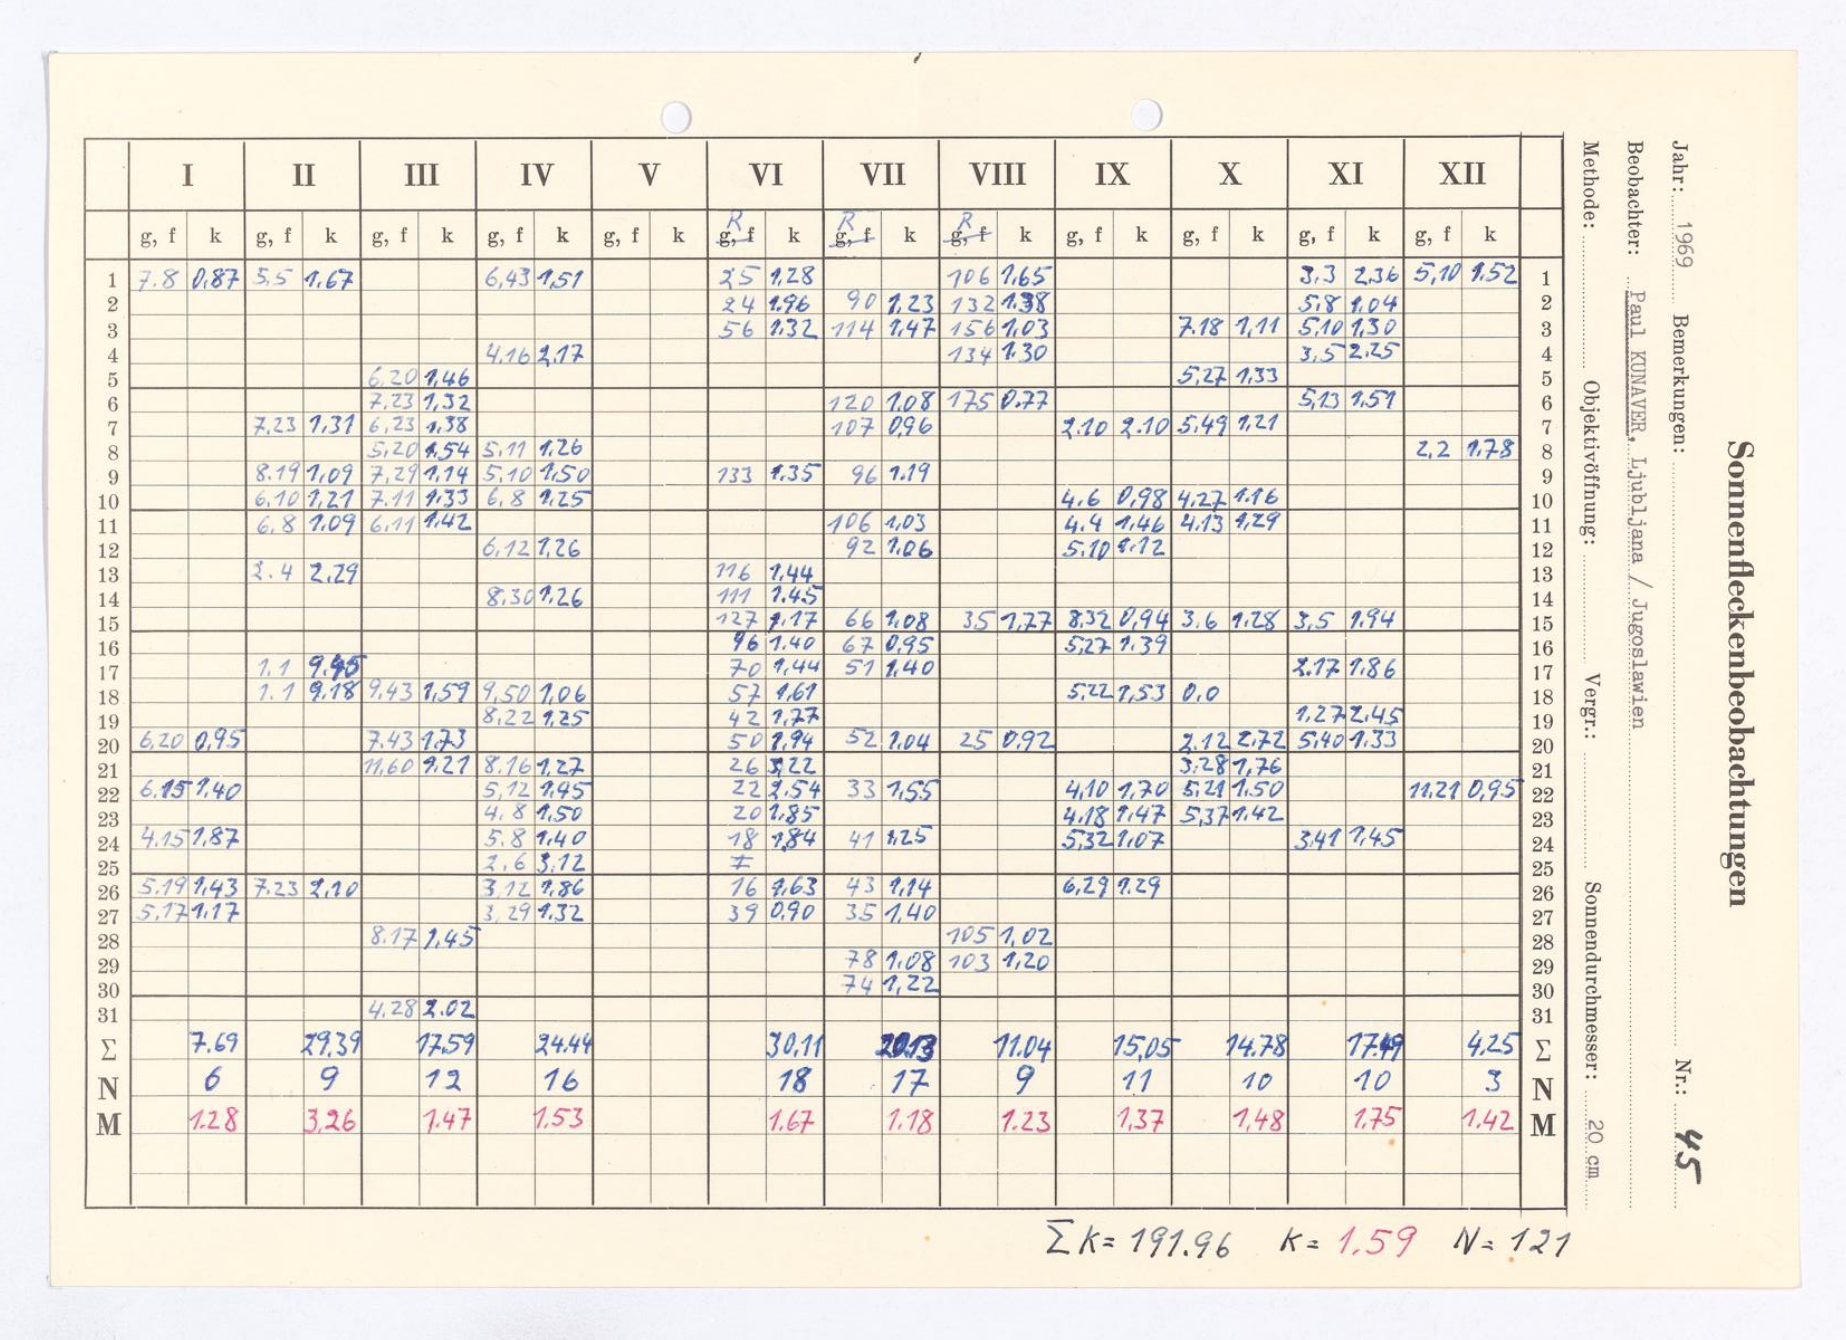 Sonnenfleckenbeobachtungen
Jahr: 1969 Bemerkungen: Nr.: 45
Beobachter: Paul KUNAVER, Ljubljana / Jugoslawien
Methode: Objektivöffnung: Vergr.: Sonnendurchmesser: 20 cm
I II III IV V VI VII VIII IX X XI XII
R R R
g, f k g, f k g, f k g, f k g, f k g, f k g, f k g, f k g, f k g, f k g, f k g, f k
1 7.8 0,87 5,5 1.67 6,43 1,51 25 1,28 106 1,65 3,3 2,36 5,10 1.52 1
2 24 1.96 90 1,23 132 1.38 5,8 1,04 2
3 56 1.32 114 1,47 156 1,03 7.18 1,11 5,10 1,30 3
4 4.16 2,17 134 1.30 3,5 2.25 4
5 6.20 1,46 5,27 1,33 5
6 7.23 1,32 120 1.08 175 0.77 5,13 1,51 6
7 7,23 1,31 6,23 1,38 107 0,96 2.10 2.10 5,49 1,21 7
8 5,20 1,54 5,11 1.26 2,2 1,78 8
9 8.19 1,09 7,29 1,14 5,10 1,50 133 1.35 96 1.19 9
10 6,10 1,21 7.11 1.33 6,8 1,25 4.6 0,98 4,27 1.16 10
11 6,8 1,09 6,11 1,42 106 1,03 4.4 1,46 4.13 1,29 11
12 6,12 1,26 92 1.06 5.10 1.12 12
13 2.4 2,29 116 1,44 13
14 8,30 1.26 111 1.45 14
15 127 1.17 66 1,08 35 1,77 8,32 0,94 3.6 1.28 3,5 1.94 15
16 96 1.40 67 0,95 5,27 1.39 16
17 1.1 9.45 70 1,44 51 1.40 2.17 1.86 17
18 1.1 9.18 9.43 1,59 9,50 1,06 57 1.61 5,22 1,53 0,0 18
19 8,22 1,25 42 1,77 1,27 2.45 19
20 6,20 0,95 7.43 1.73 50 1,94 52 1,04 25 0,92 2.12 2,72 5,40 1.33 20
21 11,60 1.21 8.16 1,27 26 3,22 3,28 1,76 21
22 6.15 1,40 5,12 1,95 22 2.54 33 1,55 4,10 1,70 5,21 1.50 11.21 0,95 22
23 4.8 1,50 20 1,85 4.18 1,47 5,37 1.42 23
24 4.15 1,87 5.8 1,40 18 1,84 41 1,25 5,32 1,07 3,41 1,45 24
25 2.6 3,12 25
26 5.19 1,43 7.23 2,10 3,12 1,86 16 1,63 43 1,14 6,29 1.29 26
27 5,17 1,17 3,29 1.32 39 0,90 35 1,40 27
28 8.17 1,45 105 1,02 28
29 78 1.08 103 1,20 29
30 74 1,22 30
31 4.28 2.02 31
Σ 7.69 29,39 17,59 24.44 30,11 20.13 11.04 15,05 14.78 17.49 4,25 Σ
N 6 9 12 16 18 17 9 11 10 10 3 N
M 1.28 3,26 1.47 1.53 1.67 1.18 1.23 1,37 1,48 1,75 1.42 M
Σ k = 191.96 k = 1.59 N = 121